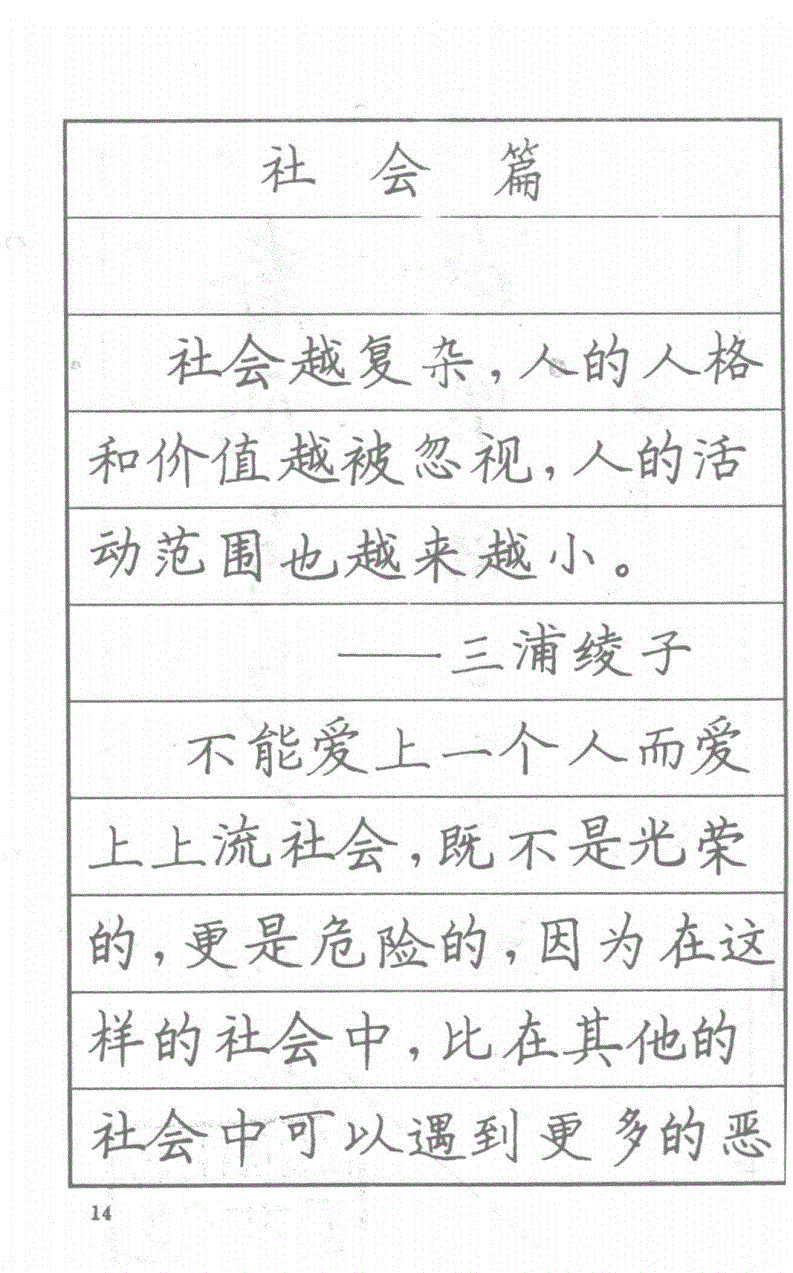 社会篇
社会越复杂,人的人格
和价值越被忽视,人的活
动范围也越来越小。
——三浦绫子
不能爱上一个人而爱
上上流社会,既不是光荣
的,更是危险的,因为在这
样的社会中,比在其他的
社会中可以遇到更多的恶
14